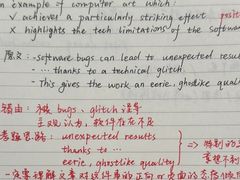 n example of computer art which:
✓ achieves a particularly striking effect posi
× highlights the tech limitations of the softwar
原文: -software bugs can lead to unexpected results
- ... thanks to a technical glitch.
- This gives the work an eerie, ghostlike quali
错因: 不被 bugs、glitch 误导
主观认为, 软件存在不足
考题思路: unexpected results
thanks to
eerie, ghostlike quality